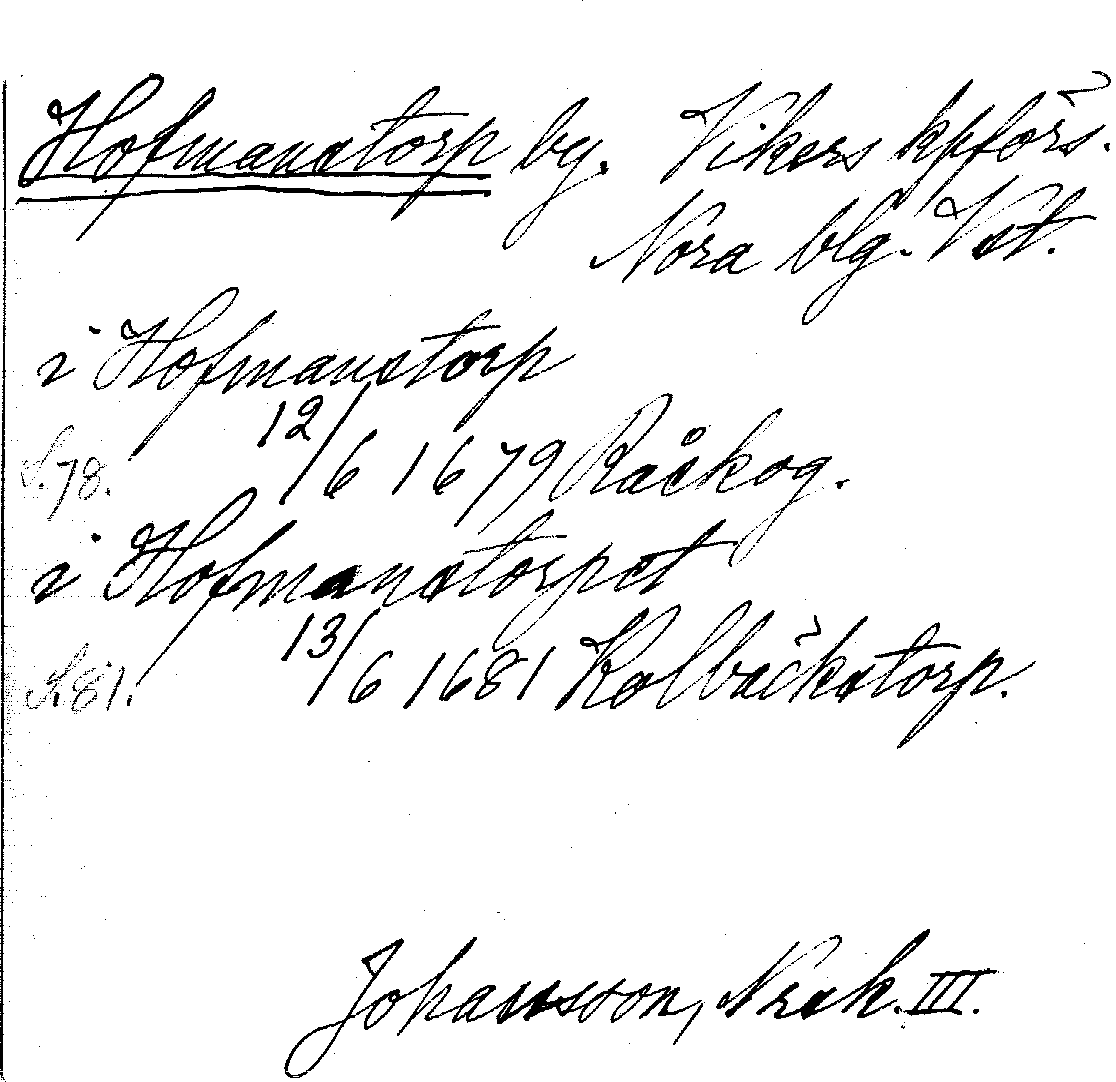 Hofmanstorp by. Vikers kpförs.
Nora blg. Vst.
i Hofmanstorp
12/6 1679 Råskog.
S. 78.
i Hofmanstorpet
13/6 1681 Kolbäckstorp.
S. 81.
Johansson, Nrak. III.